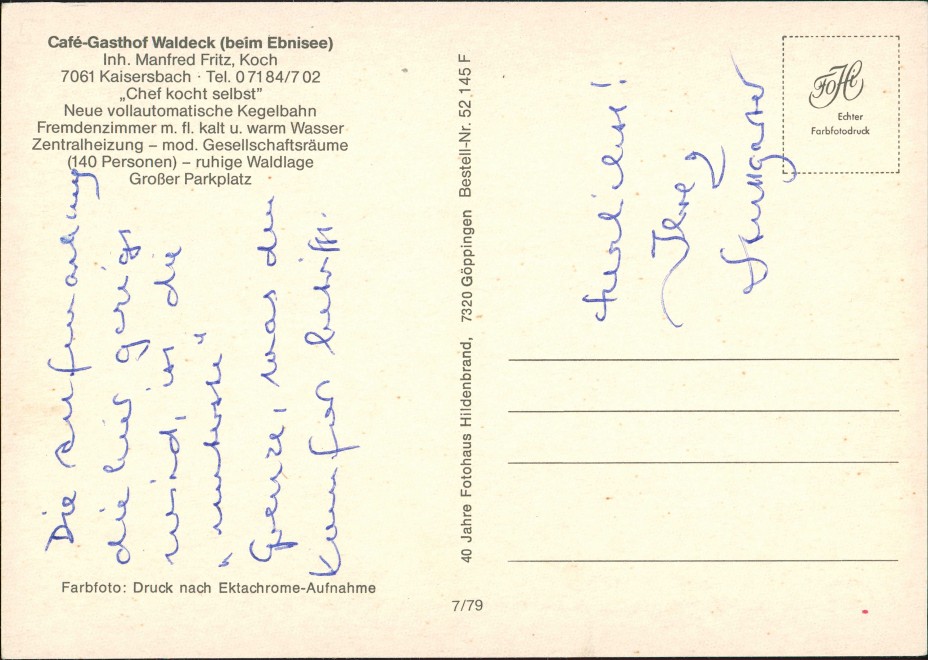 Café-Gasthof Waldeck (beim Ebnisee)
Inh. Manfred Fritz, Koch
7061 Kaisersbach · Tel. 0 71 84/7 02
„Chef kocht selbst”
Neue vollautomatische Kegelbahn
Fremdenzimmer m. fl. kalt u. warm Wasser
Zentralheizung – mod. Gesellschaftsräume
(140 Personen) – ruhige Waldlage
Großer Parkplatz
Die
die hier
wird, ist die
„unterste"
Grenze, was den
Komfor betrifft.
Farbfoto: Druck nach Ektachrome-Aufnahme
40 Jahre Fotohaus Hildenbrand, 7320 Göppingen Bestell-Nr. 52 145 F
7/79
Herzlichst!
Ihre
FoHi
Echter
Farbfotodruck